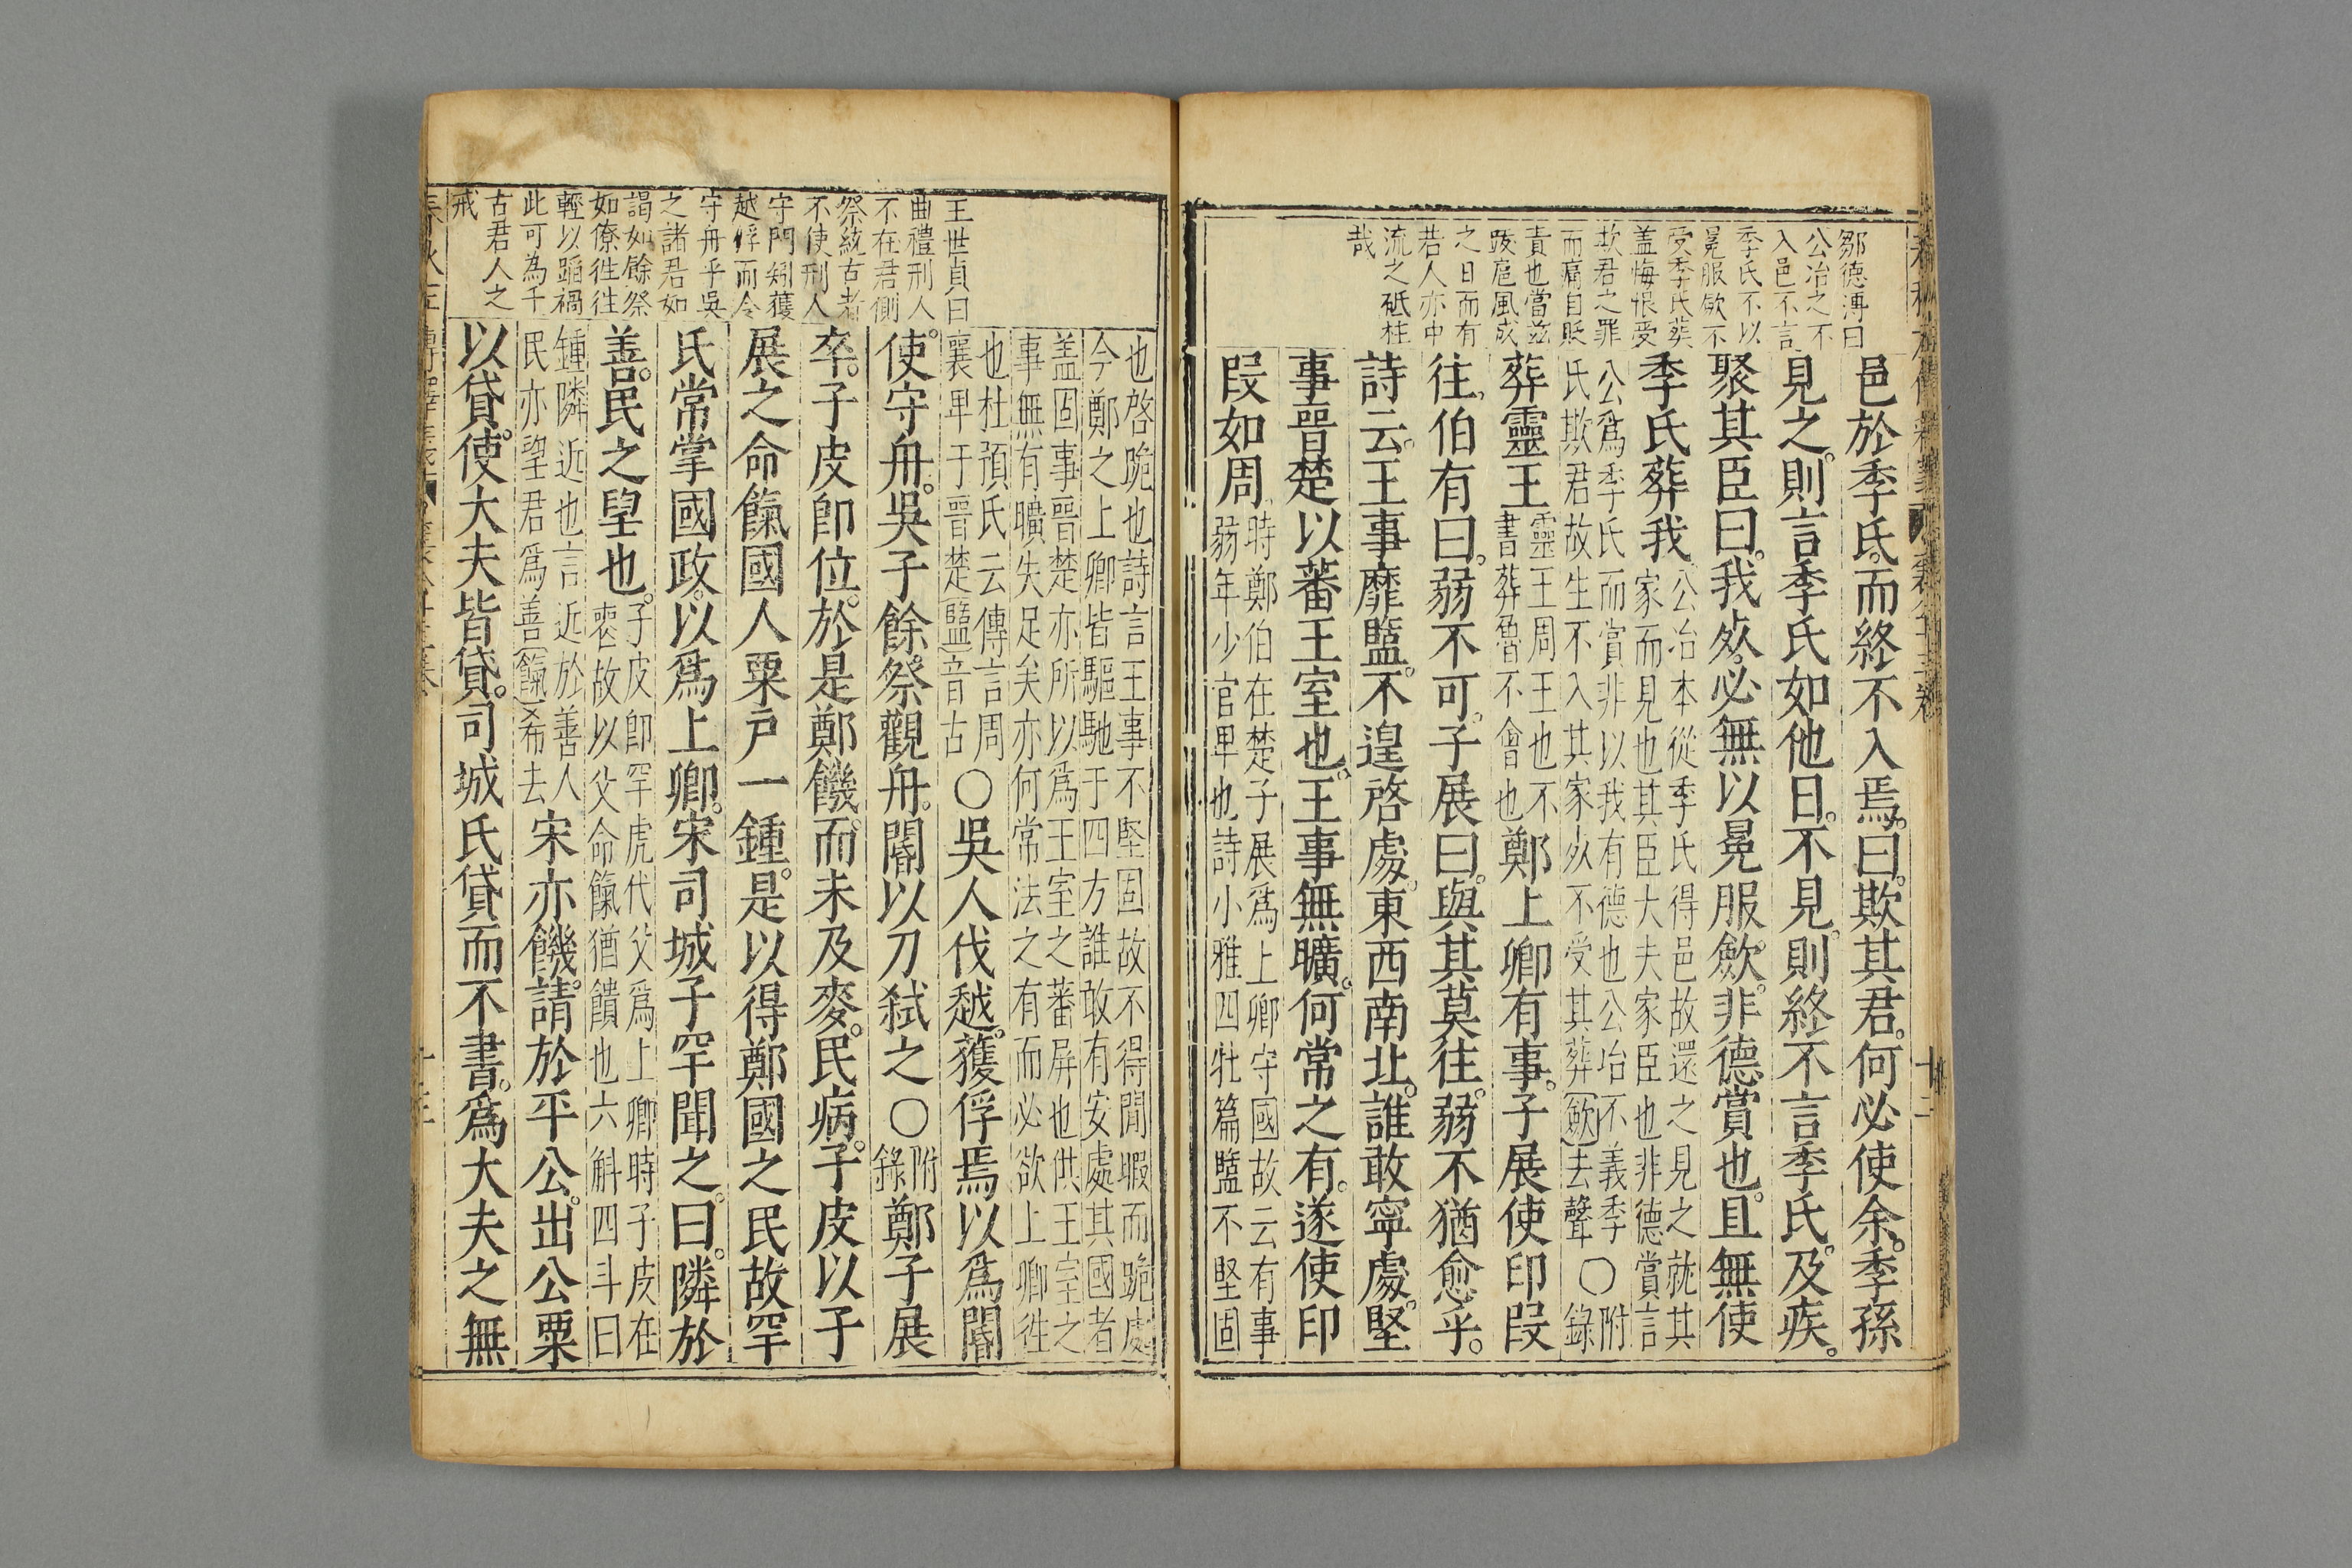 鄒德溥曰
公冶之不
入邑不言
季氏不以
冕服歛不
受季氏葬
盖悔恨受
欺君之罪
而痛自貶
責也當茲
跋扈風成
之日而有
若人亦中
流之砥柱
哉
邑於季氏而終不入焉曰欺其君何必使余季孫
見之則言季氏如他日不見則終不言季氏及疾
聚其臣曰我死必無以冕服歛非德賞也且無使
季氏葬我公冶本從季氏得邑故還之見之就其
家而見也其臣大夫家臣也非德賞言
公爲季氏而賞非以我有德也公冶不義季
氏欺君故生不入其家死不受其葬歛去聲〇附
錄
葬靈王靈王周王也不
書葬魯不會也鄭上卿有事子展使印段
往伯有曰弱不可子展曰與其莫往弱不猶愈乎
詩云王事靡盬不遑啓處東西南北誰敢寧處堅
事晉楚以蕃王室也王事無曠何常之有遂使印
段如周時鄭伯在楚子展爲上卿守國故云有事
弱年少官卑也詩小雅四牡篇盬不堅固
王世貞曰
曲禮刑人
不在君側
祭統古者
不使刑人
守門矧獲
越俘而令
守舟乎吳
之諸君如
謁如餘祭
如僚徃徃
輕以蹈禍
此可為千
古君人之
戒
也啓跪也詩言王事不堅固故不得閒暇而跪處
今鄭之上卿皆驅馳于四方誰敢有安處其國者
盖固事晉楚亦所以爲王室之蕃屏也供王室之
事無有曠失足矣亦何常法之有而必欲上卿徃
也杜預氏云傳言周
襄卑于晉楚盬音古〇吳人伐越獲俘焉以爲閽
使守舟吳子餘祭觀舟閽以刀弑之〇附
錄鄭子展
卒子皮即位於是鄭饑而未及麥民病子皮以子
展之命餼國人粟戶一鍾是以得鄭國之民故罕
氏常掌國政以爲上卿宋司城子罕聞之曰隣於
善民之望也子皮即罕虎代父爲上卿時子皮在
䘮故以父命餼猶饋也六斛四斗曰
鍾隣近也言近於善人
民亦望君爲善餼希去宋亦饑請於平公出公粟
以貸使大夫皆貸司城氏貸而不書爲大夫之無